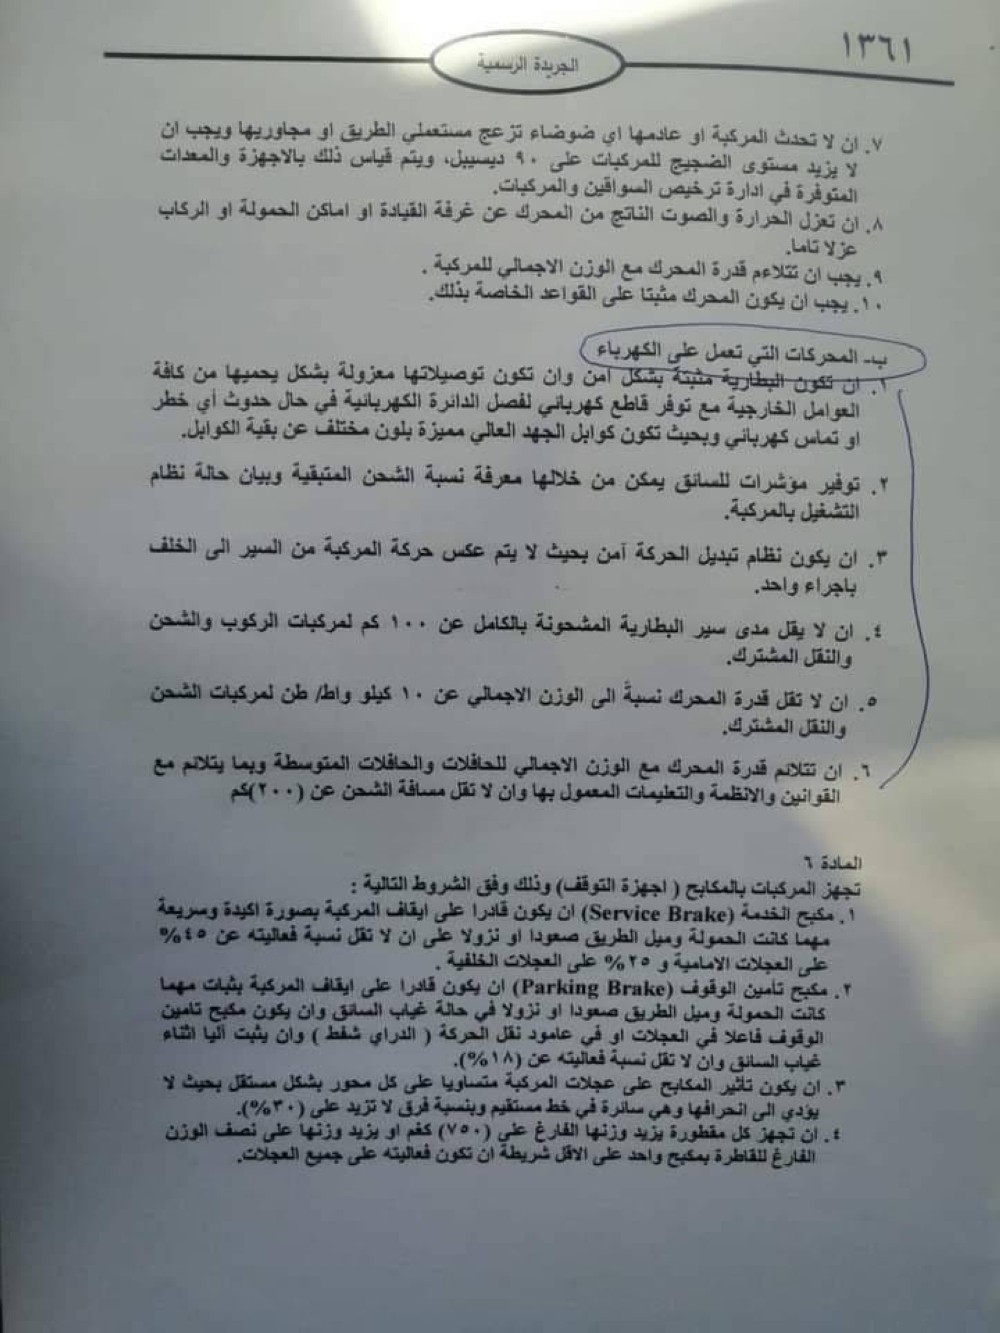 ١٣٦١
الجريدة الرسمية
٧. ان لا تحدث المركبة او عادمها اي ضوضاء تزعج مستعملي الطريق او مجاوريها ويجب ان
لا يزيد مستوى الضجيج للمركبات على ٩٠ ديسيبل، ويتم قياس ذلك بالاجهزة والمعدات
المتوفرة في ادارة ترخيص السواقين والمركبات.
٨. ان تعزل الحرارة والصوت الناتج من المحرك عن غرفة القيادة او اماكن الحمولة او الركاب
عزلا تاما.
٩. يجب ان تتلاءم قدرة المحرك مع الوزن الاجمالي للمركبة .
١٠. يجب ان يكون المحرك مثبتا على القواعد الخاصة بذلك.
ب- المحركات التي تعمل على الكهرباء
١. ان تكون البطارية مثبتة بشكل امن وان تكون توصيلاتها معزولة بشكل يحميها من كافة
العوامل الخارجية مع توفر قاطع كهربائي لفصل الدائرة الكهربائية في حال حدوث أي خطر
او تماس كهربائي وبحيث تكون كوابل الجهد العالي مميزة بلون مختلف عن بقية الكوابل.
٢. توفير مؤشرات للسائق يمكن من خلالها معرفة نسبة الشحن المتبقية وبيان حالة نظام
التشغيل بالمركبة.
٣. ان يكون نظام تبديل الحركة آمن بحيث لا يتم عكس حركة المركبة من السير الى الخلف
باجراء واحد.
٤. ان لا يقل مدى سير البطارية المشحونة بالكامل عن ١٠٠ كم لمركبات الركوب والشحن
والنقل المشترك.
٥. ان لا تقل قدرة المحرك نسبةً الى الوزن الاجمالي عن ١٠ كيلو واط/ طن لمركبات الشحن
والنقل المشترك.
٦. ان تتلائم قدرة المحرك مع الوزن الاجمالي للحافلات والحافلات المتوسطة وبما يتلائم مع
القوانين والانظمة والتعليمات المعمول بها وان لا تقل مسافة الشحن عن (٢٠٠)كم
المادة ٦
تجهز المركبات بالمكابح ( اجهزة التوقف) وذلك وفق الشروط التالية :
١. مكبح الخدمة (Service Brake) ان يكون قادرا على ايقاف المركبة بصورة اكيدة وسريعة
مهما كانت الحمولة وميل الطريق صعودا او نزولا على ان لا تقل نسبة فعاليته عن ٤٥%
على العجلات الامامية و ٢٥% على العجلات الخلفية .
٢. مكبح تأمين الوقوف (Parking Brake) ان يكون قادرا على ايقاف المركبة بثبات مهما
كانت الحمولة وميل الطريق صعودا او نزولا في حالة غياب السائق وان يكون مكبح تامين
الوقوف فاعلا في العجلات او في عامود نقل الحركة ( الدراي شفط ) وان يثبت آليا اثناء
غياب السائق وان لا تقل نسبة فعاليته عن (١٨%).
٣. ان يكون تأثير المكابح على عجلات المركبة متساويا على كل محور بشكل مستقل بحيث لا
يؤدي الى انحرافها وهي سائرة في خط مستقيم وبنسبة فرق لا تزيد على (٣٠%).
٤. ان تجهز كل مقطورة يزيد وزنها الفارغ على (٧٥٠) كغم او يزيد وزنها على نصف الوزن
الفارغ للقاطرة بمكبح واحد على الاقل شريطة ان تكون فعاليته على جميع العجلات.